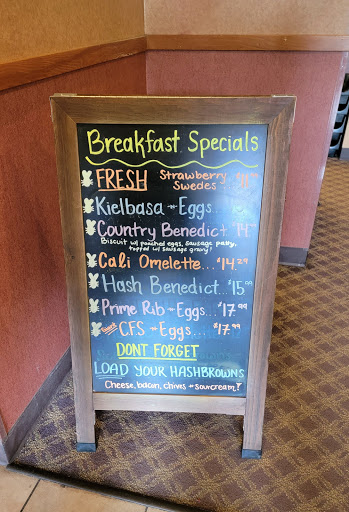 Breakfast Specials
FRESH Strawberry
Swedes
Kielbasa + Eggs...
Country Benedict..
Biscuit w/ poached eggs, sausage patty,
topped w/ sausage gravy!
Cali Omelette...$14.29
Hash Benedict..$15.99
Prime Rib + Eggs...$17.99
CFS + Eggs....$17.99
DONT FORGET
LOAD YOUR HASHBROWNS
Cheese, bacon, chives + sourcream!